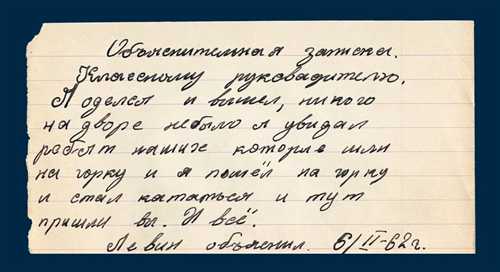 Обьяснительная записка.
Классному руководителю.
Я оделся и вышел, никого
на дворе небыло я увидал
робят нашихе которые шли
на горку и я пошёл на горку
и стал кататься и тут
пришли вы. И всё.
Левин объяснил. 6/II-62г.